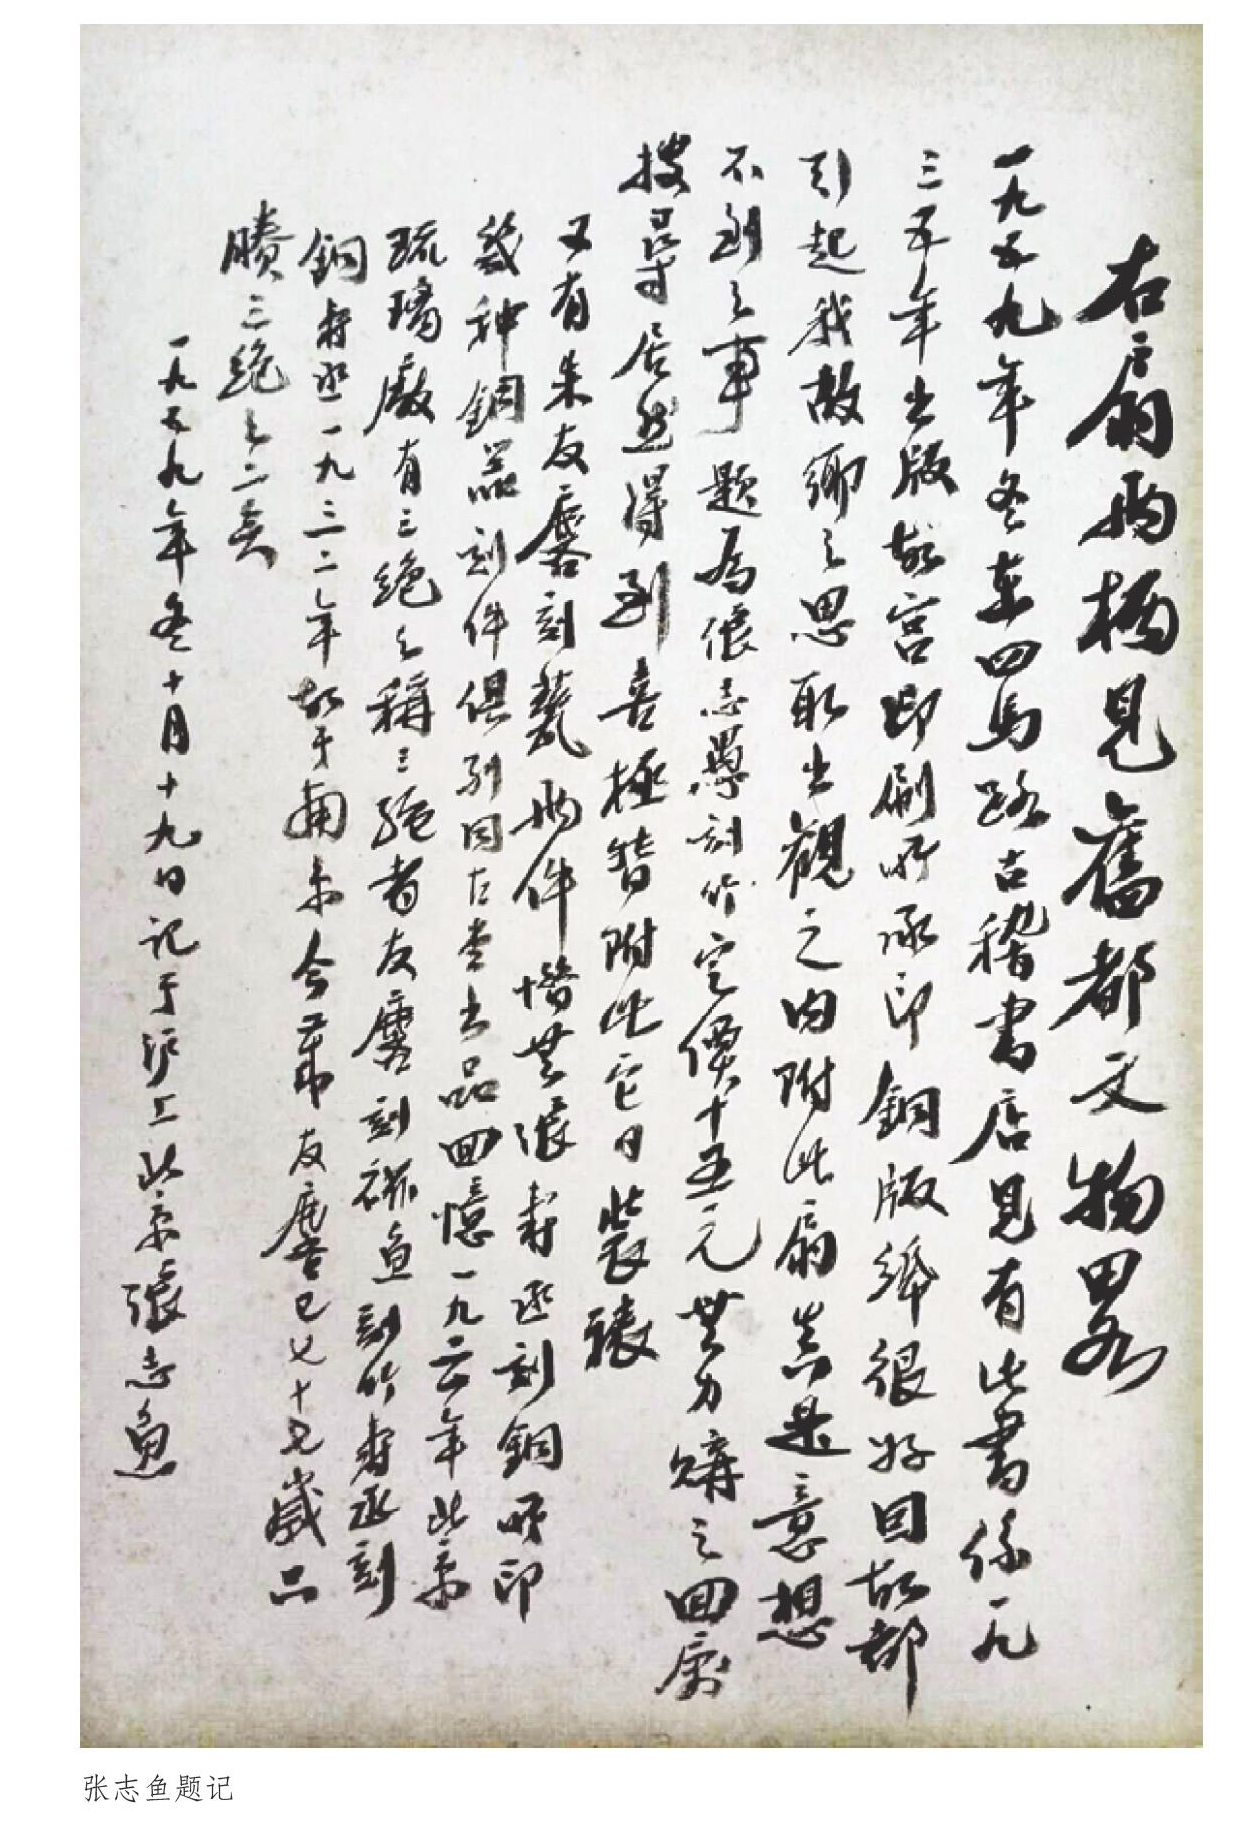 右扇两柄见舊都文物畧
一九五九年冬在四馬路古稽書店見有此書係一九
三五年出版故宫印刷所承印銅版綫很好因故都
引起我故鄉之思取出觀之内附此扇真是意想
不到之事題為張志魚刻竹定價十五元無力購之回寓
搜尋居然得到喜極暫附此它日裝裱
又有朱友麐刻瓷两件惜無張壽丞刻銅所印
幾种銅器刻件俱列同古堂出品回憶一九二六年北京
琉璃廠有三絶之稱三絶者友麐刻磁魚刻竹壽丞刻
銅壽丞一九三二年故于南京今年友麐已七十七歲只
賸三絶之二矣
一九五九年冬十月十九日记于沪上北京張志魚
张志鱼题记